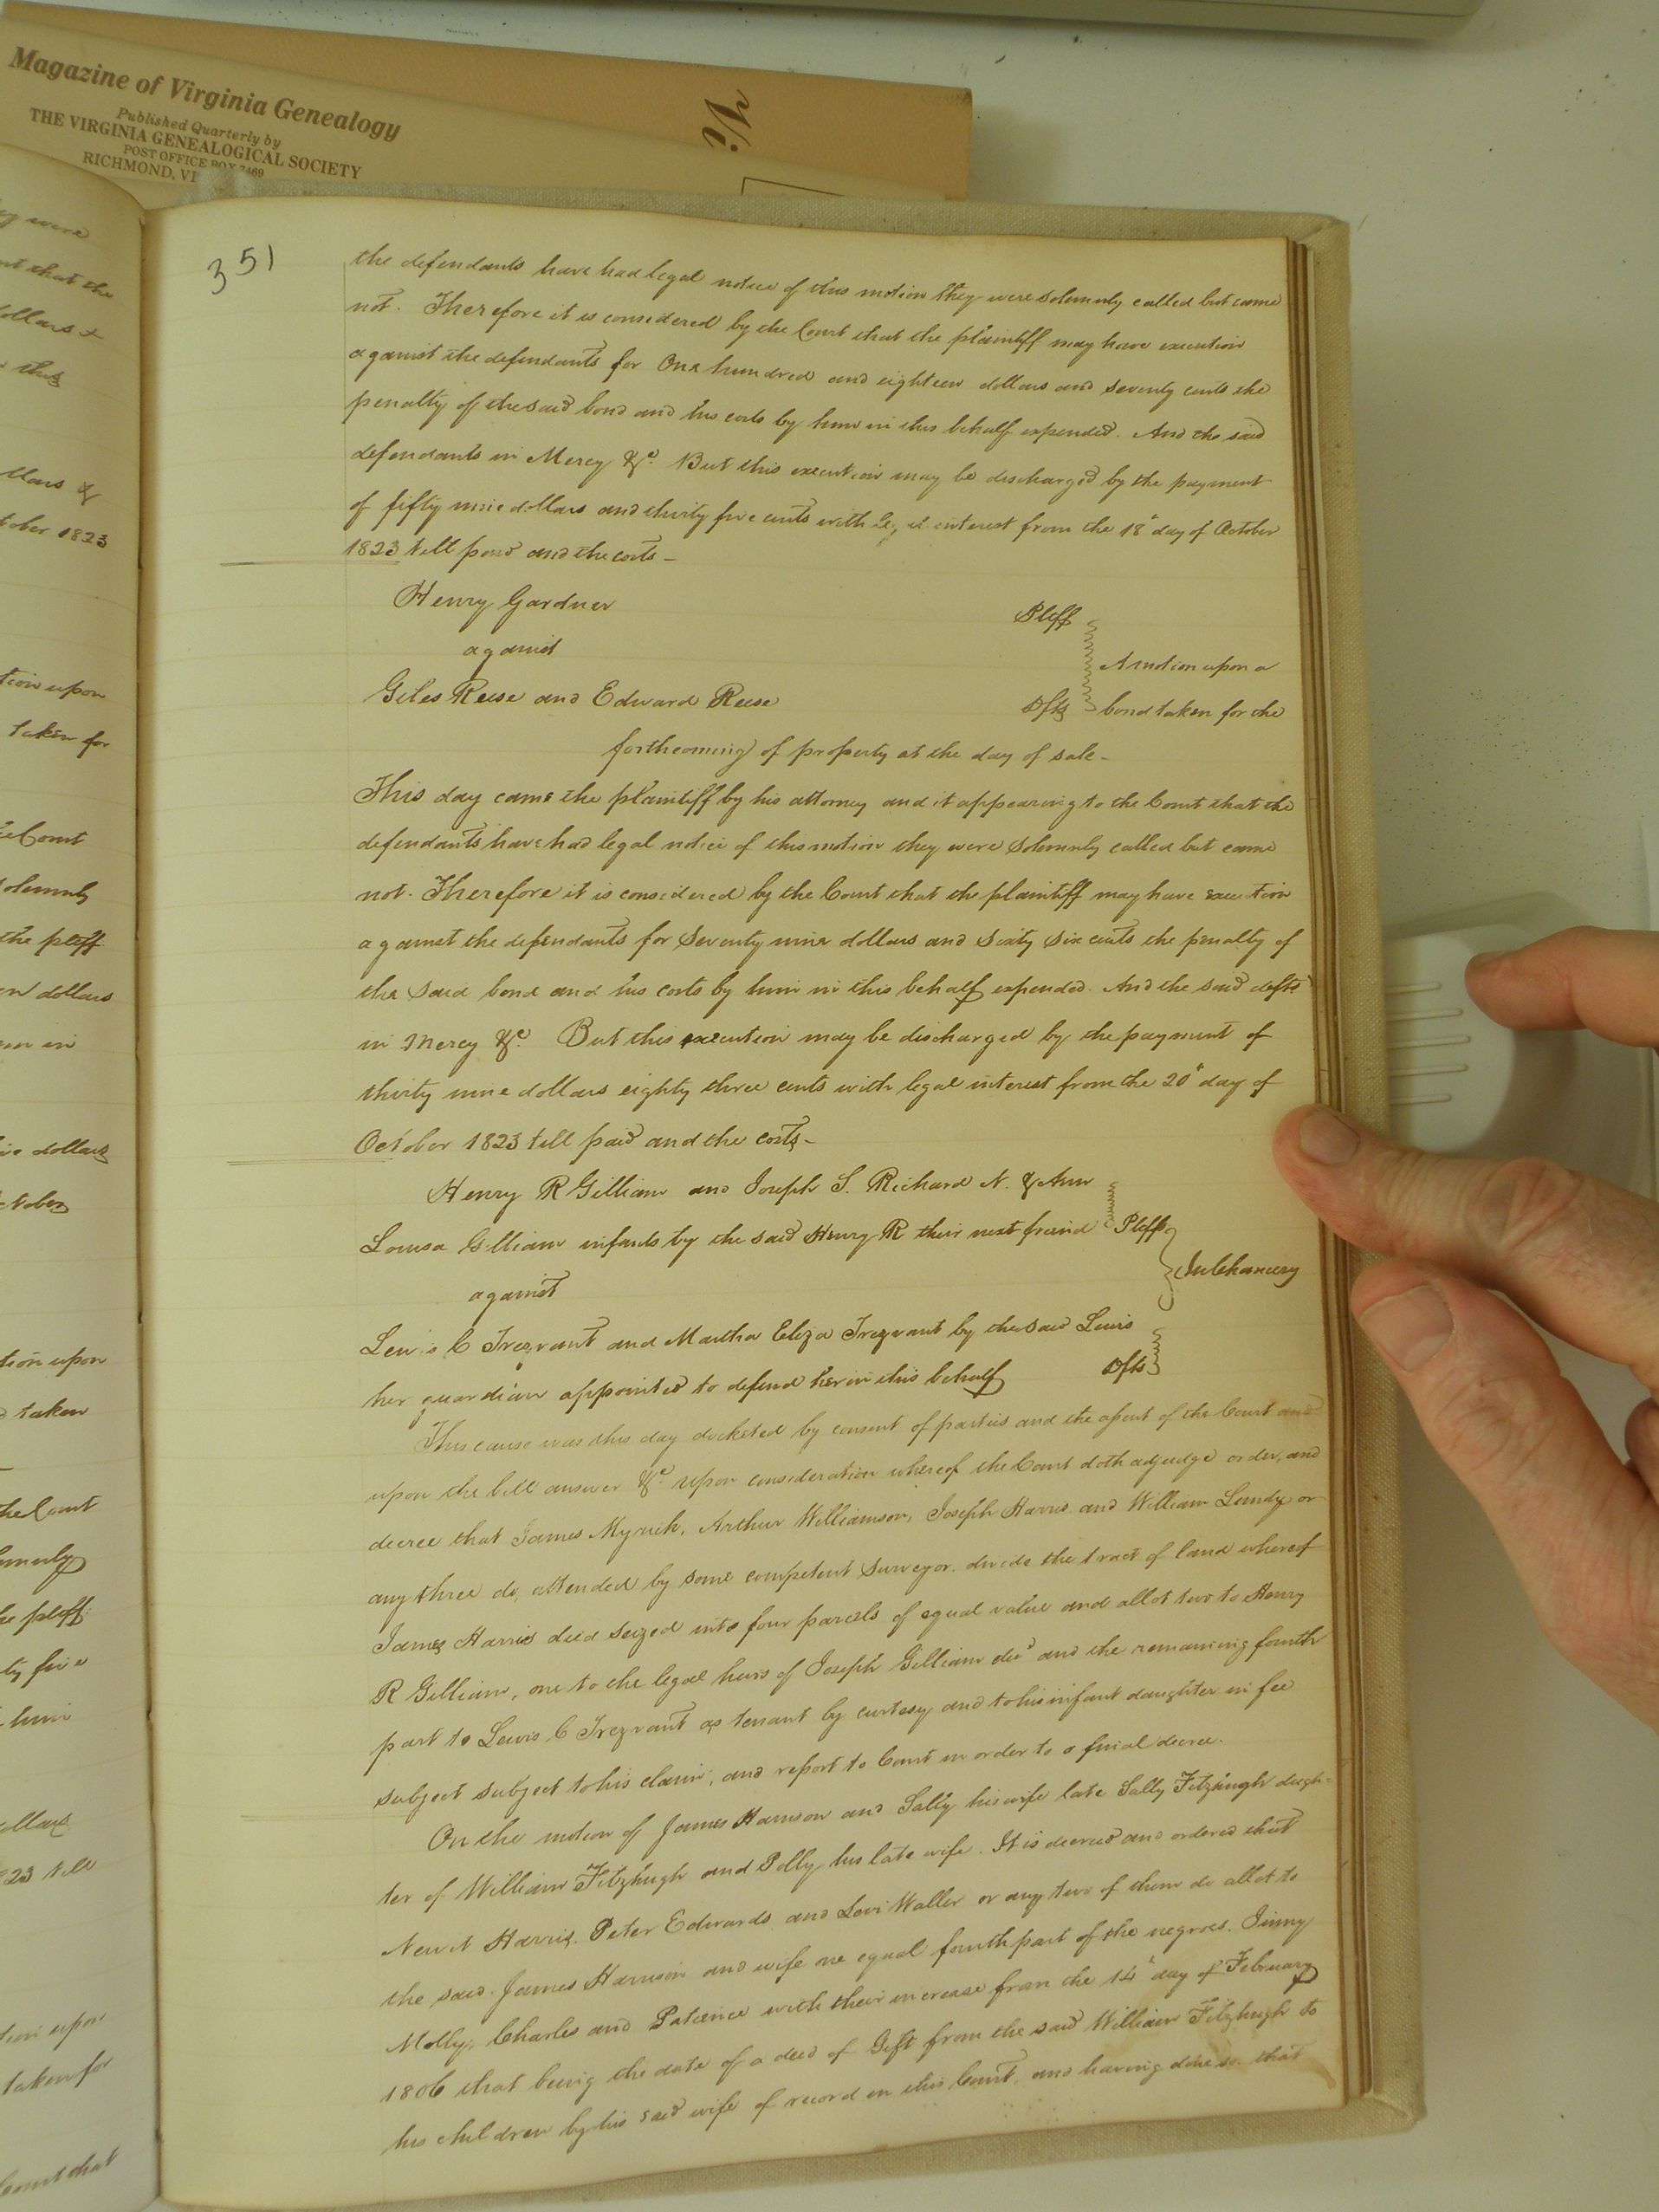 Magazine of Virginia Genealogy
Published Quarterly by
THE VIRGINIA GENEALOGICAL SOCIETY
POST OFFICE BOX 7469
RICHMOND, VI
351
the defendants have had legal notice of this motion they were solemnly called but came
not. Therefore it is considered by the Court that the plaintiff may have execution
against the defendants for One hundred and eighteen dollars and seventy cents the
penalty of the said bond and his costs by him in this behalf expended. And the said
defendants in Mercy &c. But this execution may be discharged by the payment
of fifty nine dollars and thirty five cents with legal interest from the 18" day of October
1823 till paid and the costs -
Henry Gardner Pltff
against A motion upon a
Giles Reese and Edward Reese Dfts bond taken for the
forthcoming of property at the day of sale -
This day came the plaintiff by his attorney and it appearing to the Court that the
defendants have had legal notice of this motion they were solemnly called but came
not. Therefore it is considered by the Court that the plaintiff may have execution
against the defendants for Seventy nine dollars and Sixty Six cents the penalty of
the said bond and his costs by him in this behalf expended. And the said defts
in Mercy &c. But this execution may be discharged by the payment of
thirty nine dollars eighty three cents with legal interest from the 20" day of
October 1823 till paid and the costs -
Henry R Gilliam and Joseph S. Richard N. & Ann
Louisa Gilliam infants by the said Henry R their next freind Pltffs
against In Chancery
Lewis C Trezvant and Martha Eliza Trezvant by the said Lewis
her guardian appointed to defend her in this behalf Dfts
This cause was this day docketed by consent of parties and the assent of the Court and
upon the bill answer &c. Upon consideration whereof the Court doth adjudge order, and
decree that James Myrick, Arthur Williamson, Joseph Harris and William Lundy or
any three do, attended by some competent Surveyor. divide the tract of land whereof
James Harris died seized into four parcels of equal value and allot two to Henry
R Gilliam, one to the legal heirs of Joseph Gilliam decd and the remaining fourth
part to Lewis C Trezvant as tenant by curtesy and to his infant daughter in fee
subject subject to his claim, and report to Court in order to a final decree.
On the motion of James Harrison and Sally his wife late Sally Fitzhugh daugh-
ter of William Fitzhugh and Polly his late wife. It is decreed and ordered that
Newit Harris. Peter Edwards and Levi Waller or any two of them do allot to
the said James Harrison and wife one equal fourth part of the negroes. Jinny
Molly, Charles and Patience with their increase from the 14" day of February
1806 that being the date of a deed of Gift from the said William Fitzhugh to
his children by his said wife of record in this Court, and having done so that